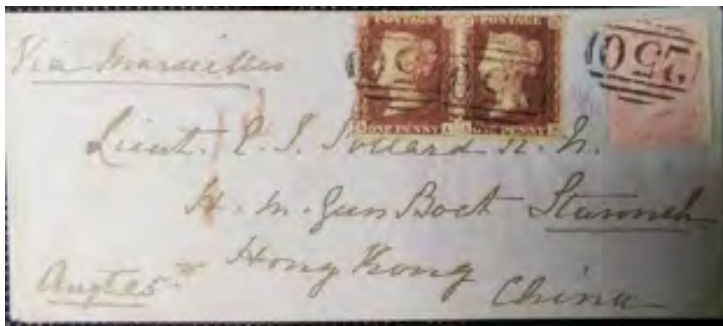 Via Marseilles
POSTAGE POSTAGE
ONE PENNY ONE PENNY
250
Lieut. R. N.
H. M. Gun Boat Staunch
Hong Kong
Augt 25th China